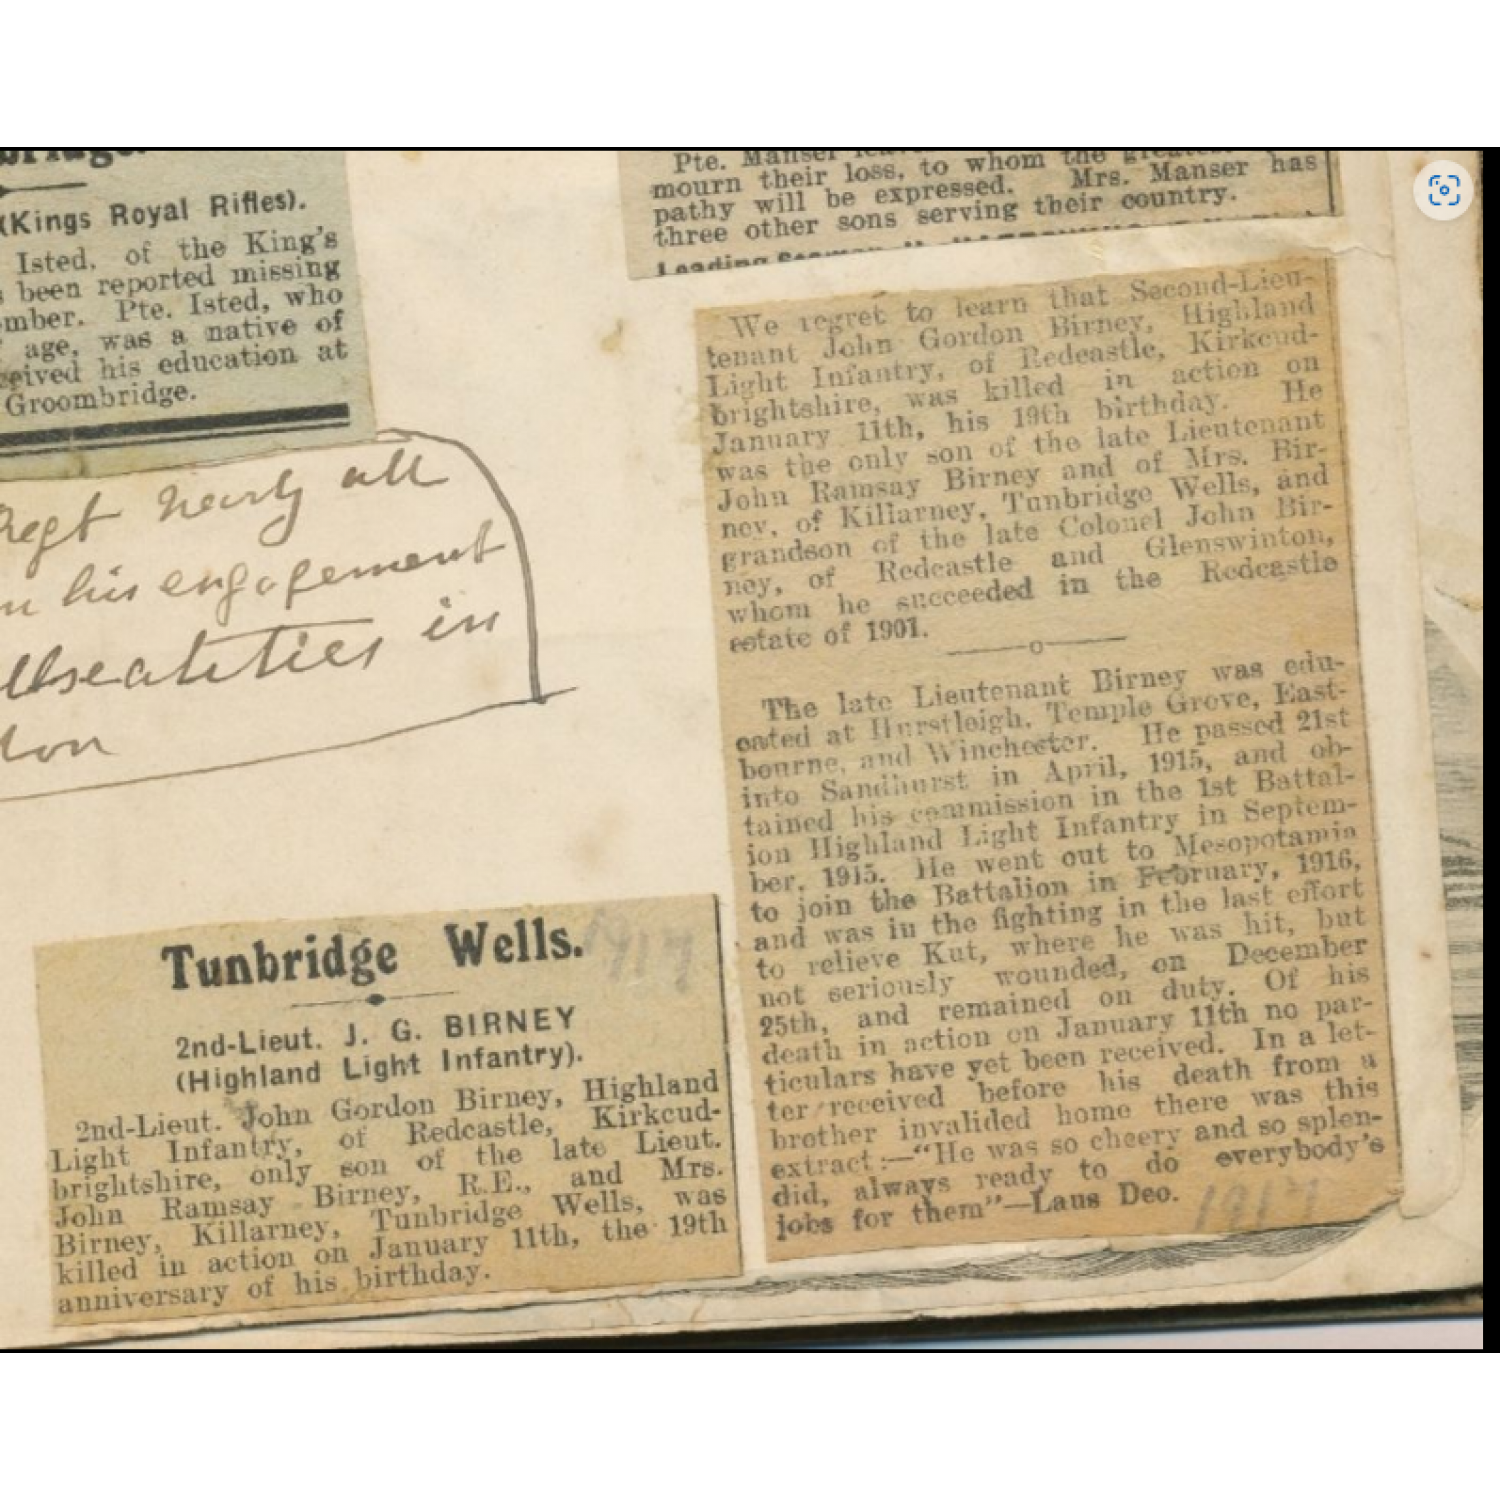 (Kings Royal Rifles).
Isted, of the King's
been reported missing
mber. Pte. Isted, who
age, was a native of
ceived his education at
Groombridge.
Regt nearly all
his engagement
in
Pte. Manser
mourn their loss, to whom the greatest
pathy will be expressed. Mrs. Manser has
three other sons serving their country.
Leading Seaman
We regret to learn that Second-Lieu-
tenant John Gordon Birney, Highland
Light Infantry, of Redcastle, Kirkcud-
brightshire, was killed in action on
January 11th, his 19th birthday. He
was the only son of the late Lieutenant
John Ramsay Birney and of Mrs. Bir-
ney, of Killarney, Tunbridge Wells, and
grandson of the late Colonel John Bir-
ney, of Redcastle and Glenswinton,
whom he succeeded in the Redcastle
estate of 1901.
The late Lieutenant Birney was edu-
cated at Hurstleigh, Temple Grove, East-
bourne, and Winchester. He passed 21st
into Sandhurst in April, 1915, and ob-
tained his commission in the 1st Battal-
ion Highland Light Infantry in Septem-
ber, 1915. He went out to Mesopotamia
to join the Battalion in February, 1916,
and was in the fighting in the last effort
to relieve Kut, where he was hit, but
not seriously wounded, on December
25th, and remained on duty. Of his
death in action on January 11th no par-
ticulars have yet been received. In a let-
ter received before his death from a
brother invalided home there was this
extract:—"He was so cheery and so splen-
did, always ready to do everybody's
jobs for them"—Laus Deo.
1917
Tunbridge Wells.
1917
2nd-Lieut. J. G. BIRNEY
(Highland Light Infantry).
2nd-Lieut. John Gordon Birney, Highland
Light Infantry, of Redcastle, Kirkcud-
brightshire, only son of the late Lieut.
John Ramsay Birney, R.E., and Mrs.
Birney, Killarney, Tunbridge Wells, was
killed in action on January 11th, the 19th
anniversary of his birthday.